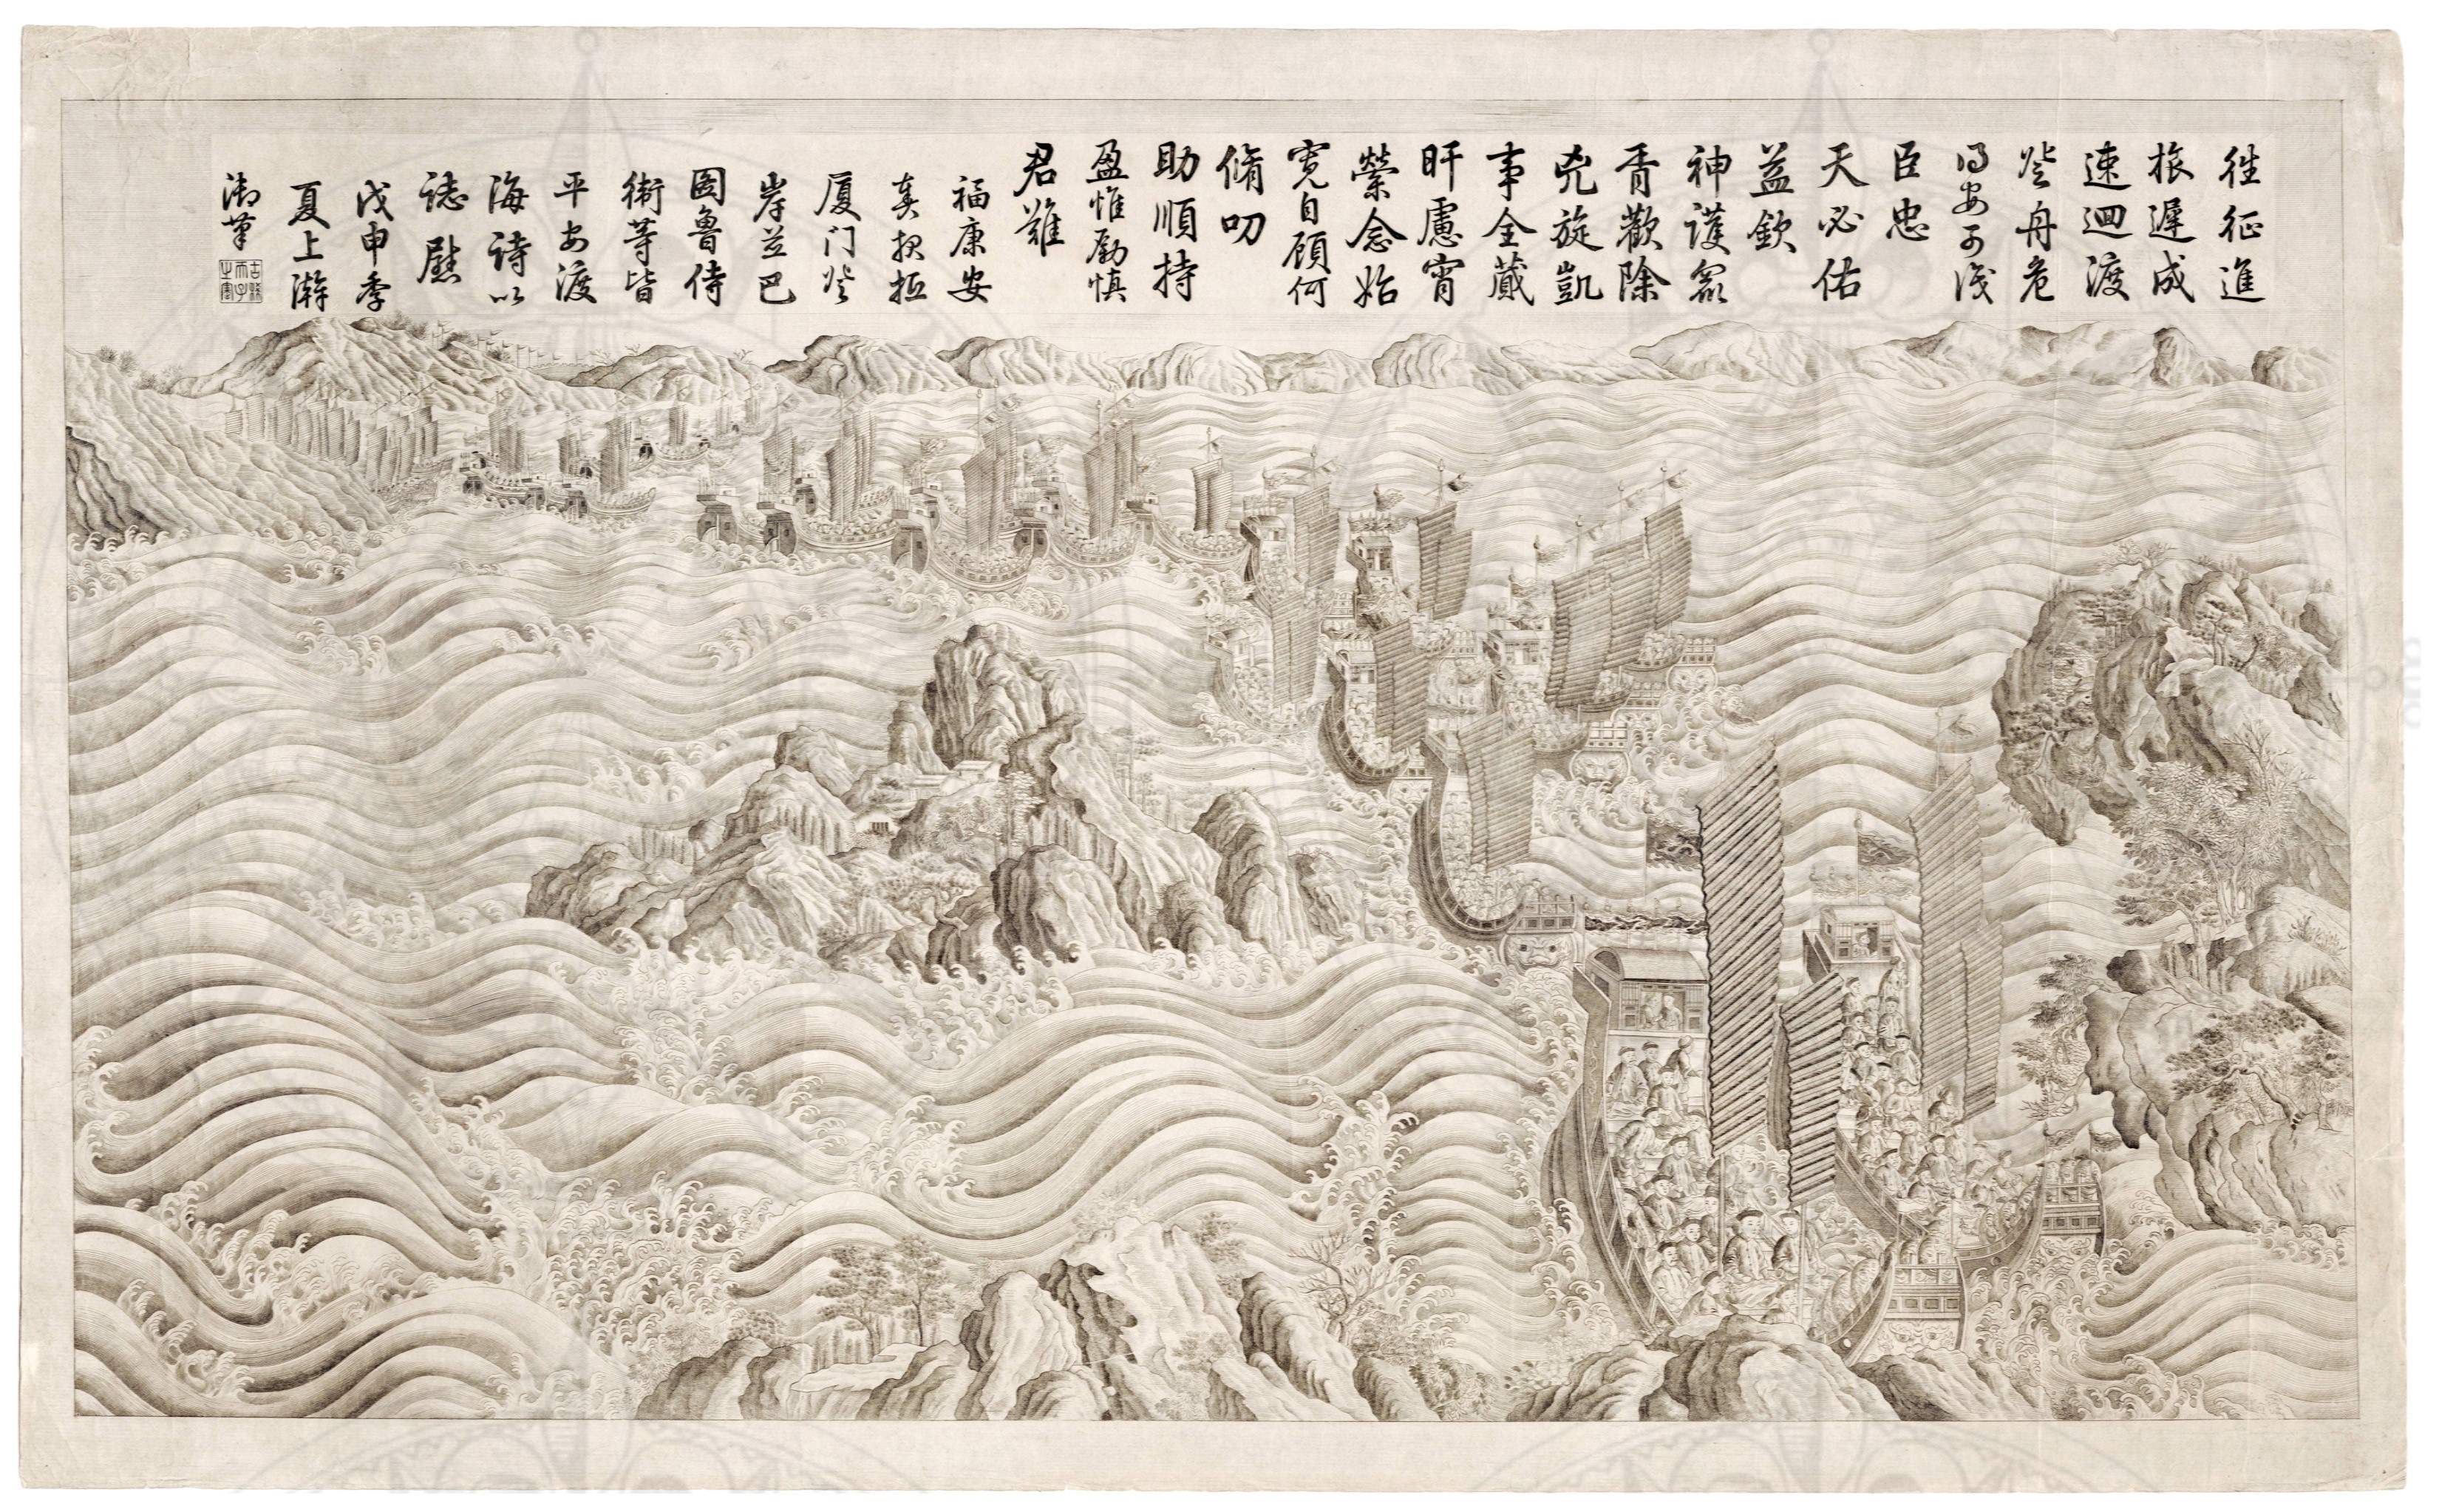 往征進
旅遲成
速迴渡
登舟危
得安可淺
臣忠
天必佑
益欽
神護眾
胥歡除
兇旋凱
事全蕆
旰慮宵
縈念始
寬自顧何
脩叨
助順持
盈惟勵慎
君難
福康安
奏報抵
厦门登
岸並巴
圖魯侍
衛等皆
平安渡
海詩以
誌慰
戊申季
夏上澣
御筆
古稀
天子
之寶